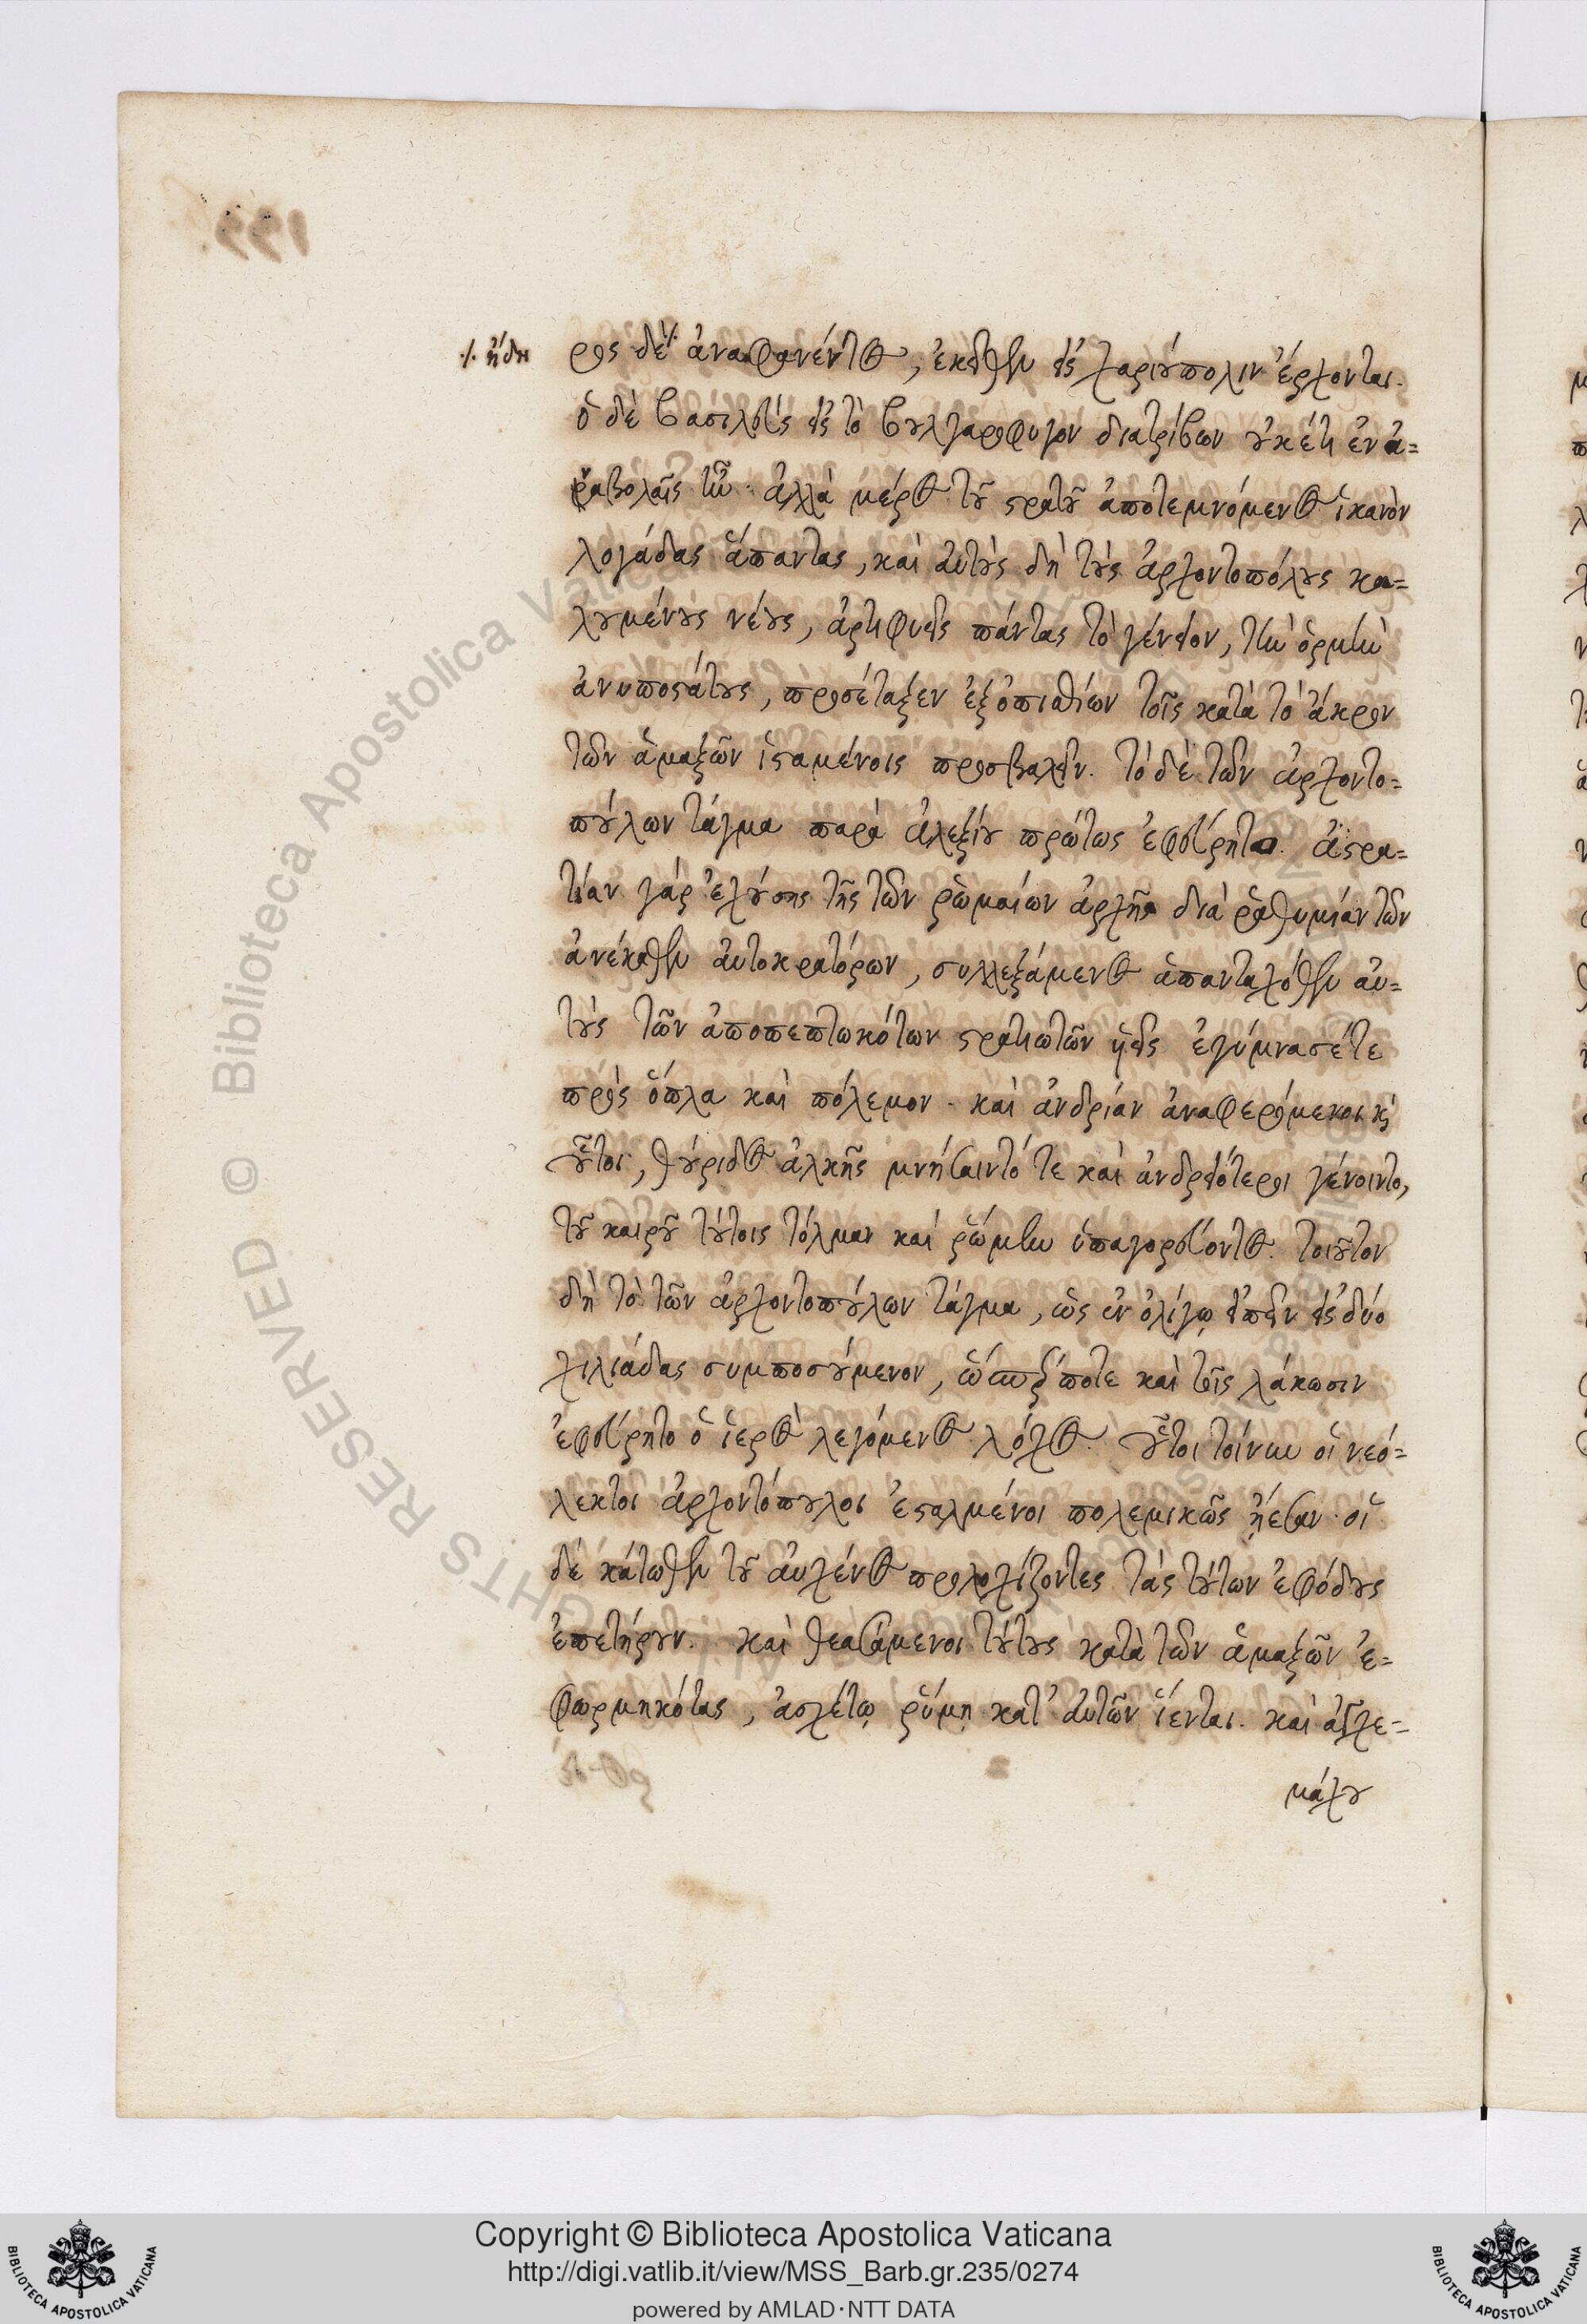 ./. ἤδη
ρος δὲ ./. ἀναφανέντος, ἐκεῖθεν εἰς χαριούπολιν ἔρχονται.
ὁ δὲ βασιλεὺς εἰς τὸ βουλγαρόφυγον διατρίβων οὐκέτι ἐν ἀ-
ναβολαῖς ἦν. ἀλλὰ μέρος τοῦ στρατοῦ ἀποτεμνόμενος ἱκανὸν
λογάδας ἅπαντας, καὶ αὐτοὺς δὴ τοὺς ἀρχοντοπόλους κα-
λουμένους νέους, ἀρτιφυεῖς πάντας τὸ γένειον, τὴν ὁρμὴν
ἀνυποστάτους, προσέταξεν ἐξ ὀπισθίων τοῖς κατὰ τὸ ἄκρον
τῶν ἁμαξῶν ἱσταμένοις προσβαλεῖν. τὸ δὲ τῶν ἀρχοντο-
πούλων τάγμα παρὰ ἀλεξίου πρώτως ἐφεύρητο. ἀστρα-
τίαν γὰρ ἐχούσης τῆς τῶν ῥωμαίων ἀρχῆς διὰ ῥαθυμίαν τῶν
ἀνέκαθεν αὐτοκρατόρων, συλλεξάμενος ἁπανταχόθεν αὐ-
τὸς τῶν ἀποπεπτωκότων στρατιωτῶν υἱεῖς ἐγύμνασέ τε
πρὸς ὅπλα καὶ πόλεμον. καὶ ἀνδρίαν ἀναφερόμενοι καὶ
οὗτοι, θούριδος ἀλκῆς μνήσαιντό τε καὶ ἀνδρειότεροι γένοιντο,
τοῦ καιροῦ τούτοις τόλμαν καὶ ῥώμην ὑπαγορεύοντος. τοιοῦτον
δὴ τὸ τῶν ἀρχοντοπούλων τάγμα, ὡς ἐν ὀλίγῳ εἰπεῖν εἰς δύο
χιλιάδας συμποσούμενον, ὥσπερ ποτε καὶ τοῖς λάκωσιν
ἐφεύρητο ὁ ἱερὸς λεγόμενος λόχος. οὗτοι τοίνυν οἱ νεό-
λεκτοι ἀρχοντόπουλοι ἐσταλμένοι πολεμικῶς ᾔεσαν. οἱ
δὲ κάτωθεν τοῦ αὐχένος προλοχίζοντες τὰς τούτων ἐφόδους
ἐπετήρουν. καὶ θεασάμενοι τούτους κατὰ τῶν ἁμαξῶν ἐ-
φωρμηκότας, ἀσχέτῳ ῥύμῃ κατ' αὐτῶν ἵενται. καὶ ἀγχε-
μάχου
Copyright © Biblioteca Apostolica Vaticana
http://digi.vatlib.it/view/MSS_Barb.gr.235/0274
powered by AMLAD · NTT DATA
BIBLIOTECA APOSTOLICA VATICANA
BIBLIOTECA APOSTOLICA VATICANA